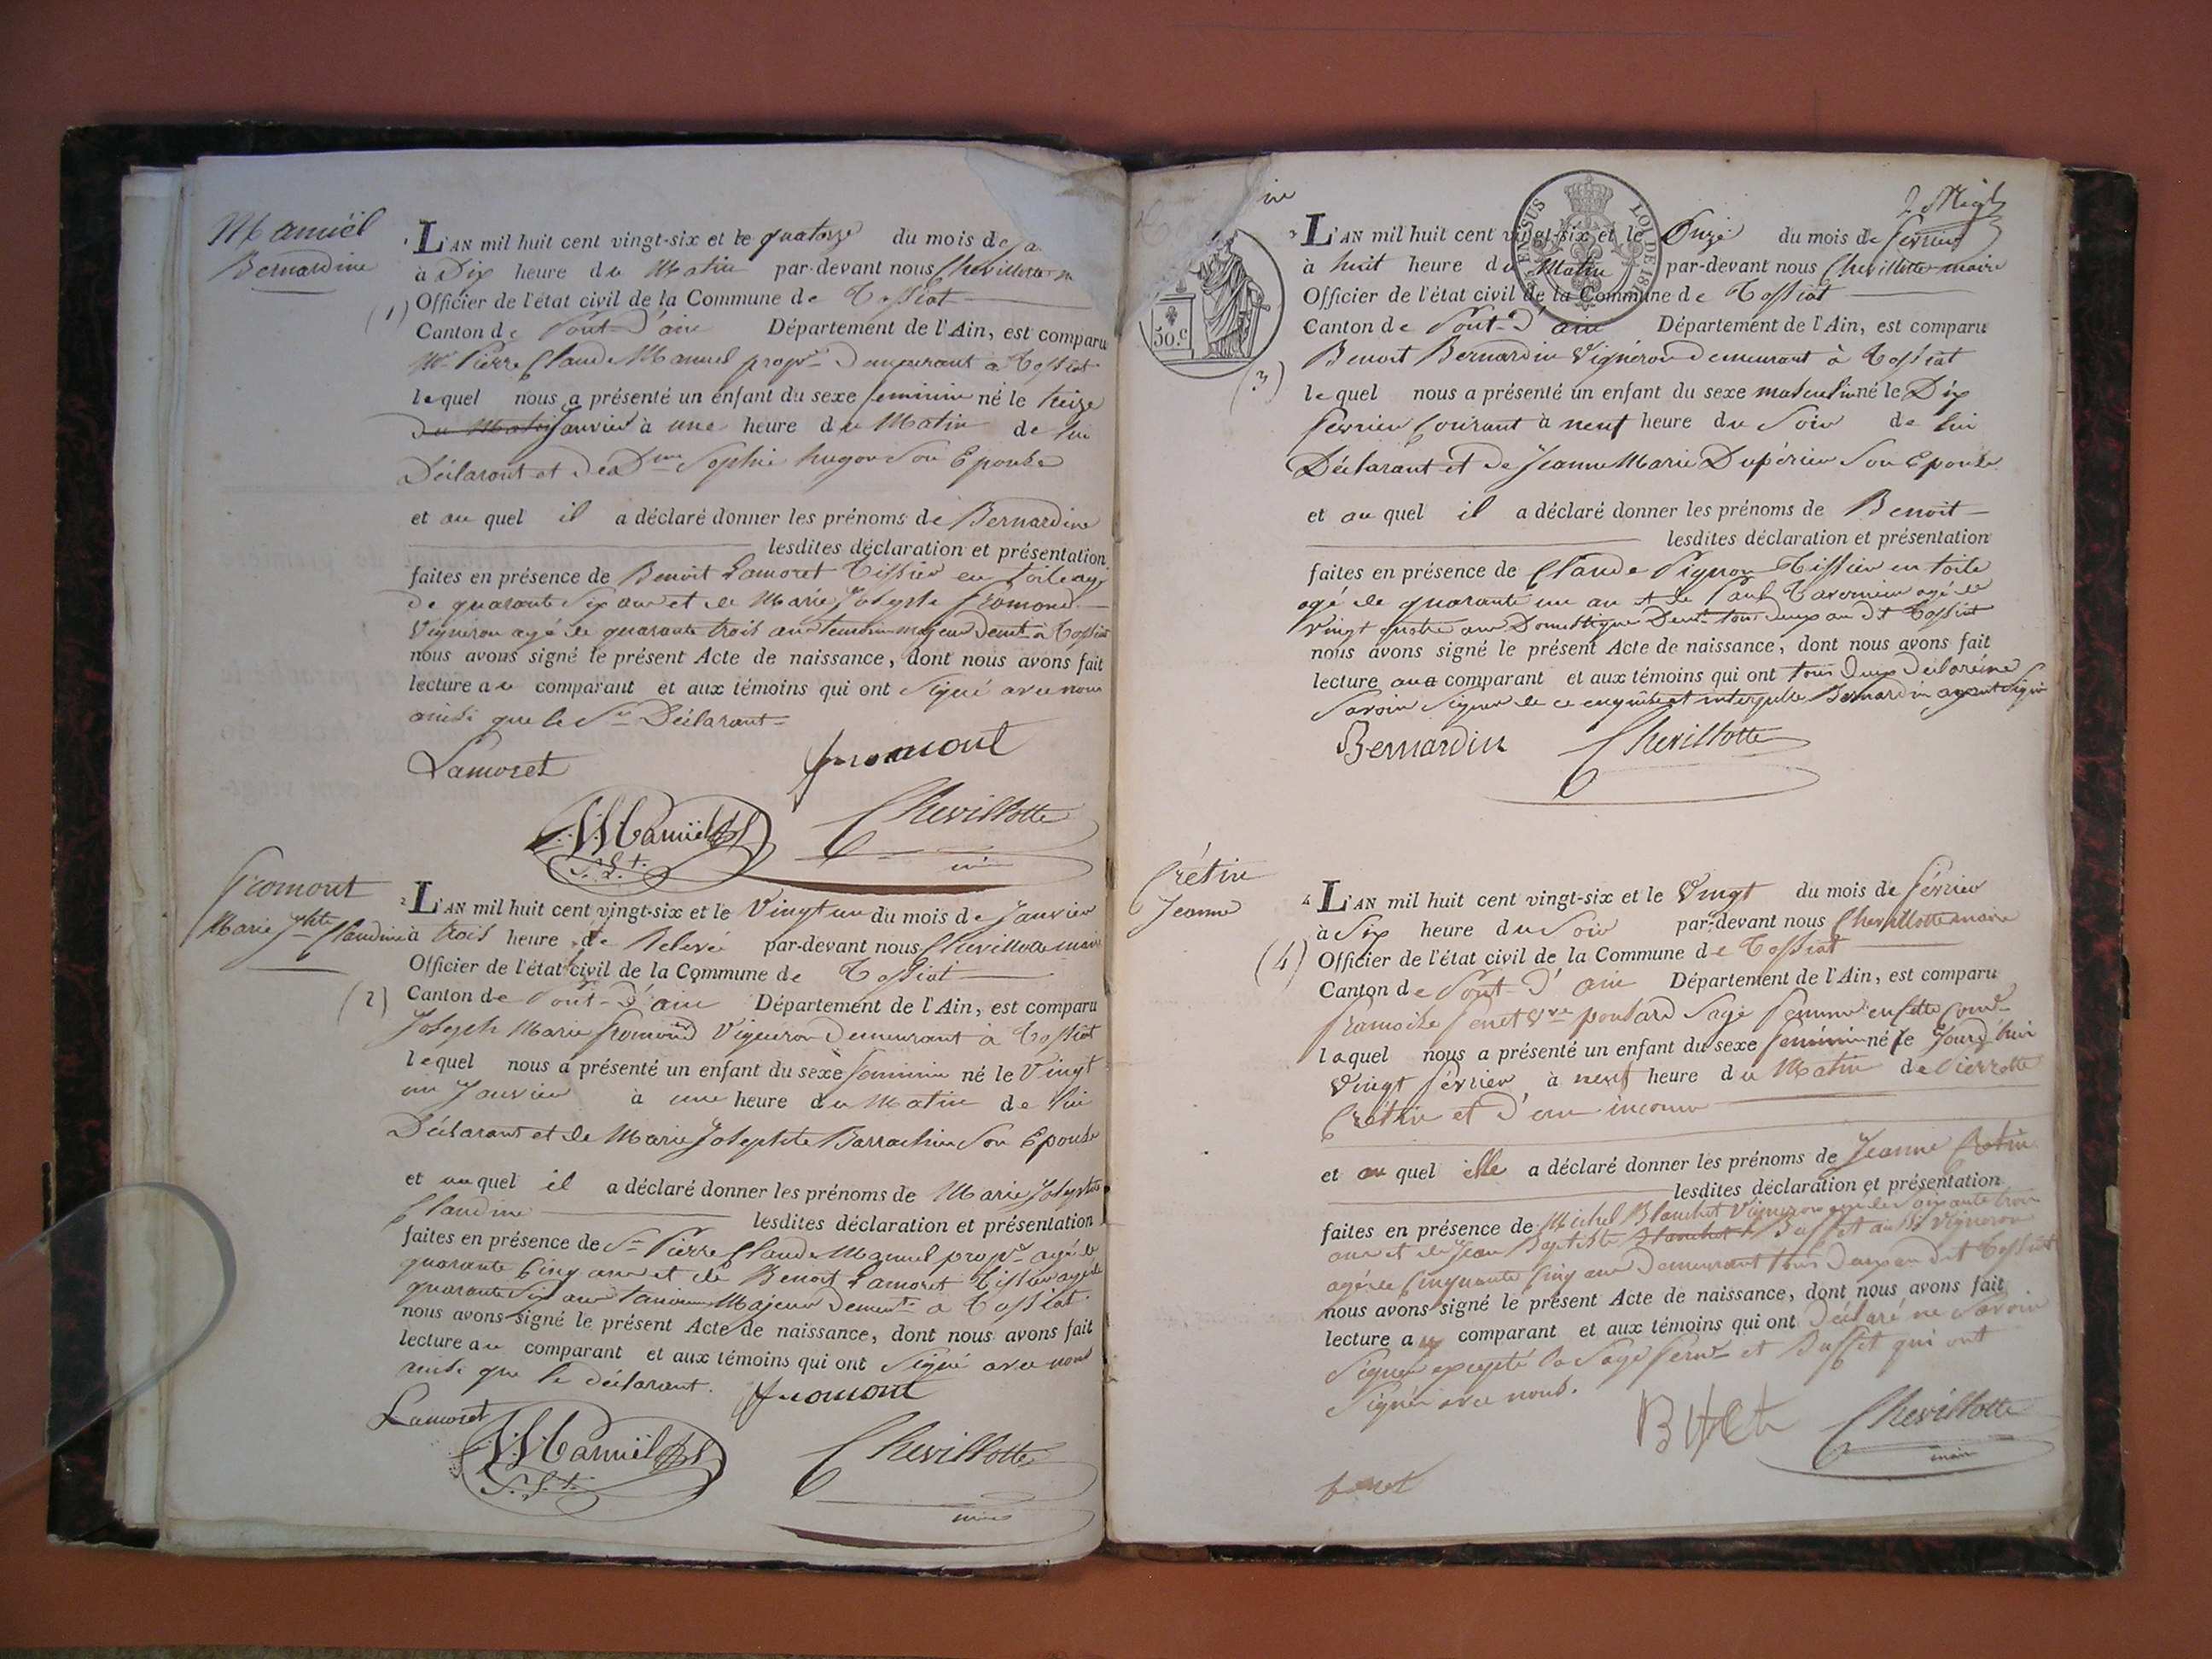 Mamiël
Bernardine
(1)
1 L'AN mil huit cent vingt-six et le quatorze du mois de
à Dix heure du Matin par-devant nous Chevillotte
Officier de l'état civil de la Commune de Tossiat
Canton de Pont-d'ain Département de l'Ain, est comparu
Mr Pierre Claude Mamiel propre demeurant à Tossiat
lequel nous a présenté un enfant du sexe feminin né le treize
du Matin Janvier à une heure du Matin de lui
Déclarant et de Dme Sophie hugon son Epouse
et au quel il a déclaré donner les prénoms de Bernardine
lesdites déclaration et présentation
faites en présence de Benoit Lamoret Tissier en toile agé
de quarante six ans et de Marie Joseph fromond
Vigneron agé de quarante trois ans temoins majeur Demt à Tossiat
nous avons signé le présent Acte de naissance, dont nous avons fait
lecture au comparant et aux témoins qui ont signé avec nous
ainsi que le Sr Déclarant
Lamoret fromont
Mamiel Chevillotte
Fromont
Marie Jphte Claudine
(2)
2 L'AN mil huit cent vingt-six et le Vingt un du mois de Janvier
à trois heure de Relevé par-devant nous Chevillotte maire
Officier de l'état civil de la Commune de Tossiat
Canton de Pont-d'ain Département de l'Ain, est comparu
Joseph Marie fromond Vigneron demeurant à Tossiat
lequel nous a présenté un enfant du sexe feminin né le Vingt
un Janvier à une heure du Matin de lui
Déclarant et de Marie Josephte Barrachin son Epouse
et au quel il a déclaré donner les prénoms de Marie Josephte
Claudine lesdites déclaration et présentation
faites en présence de Sr Pierre Claude Mamiel propre agé de
quarante cinq ans et de Benoit Lamoret Tissier agé de
quarante six ans temoins Majeur Demt à Tossiat
nous avons signé le présent Acte de naissance, dont nous avons fait
lecture au comparant et aux témoins qui ont signé avec nous
ainsi que le déclarant.
Lamoret fromont
Mamiel Chevillotte
50.c
LOI DE 181
(3)
3 L'AN mil huit cent vingt-six et le Onze du mois de fevrier
à huit heure du Matin par-devant nous Chevillotte maire
Officier de l'état civil de la Commune de Tossiat
Canton de Pont-d'ain Département de l'Ain, est comparu
Benoit Bernardin Vigneron demeurant à Tossiat
lequel nous a présenté un enfant du sexe masculin né le Dix
fevrier courant à neuf heure du Soir de lui
Déclarant et de Jeanne Marie Dupérier son Epouse
et au quel il a déclaré donner les prénoms de Benoit
lesdites déclaration et présentation
faites en présence de Claude Pignon Tissier en toile
agé de quarante un an et de Paul Tavernier agé de
Vingt quatre ans Domestique Demt tous deux au dit Tossiat
nous avons signé le présent Acte de naissance, dont nous avons fait
lecture au comparant et aux témoins qui ont tous deux declaré ne
savoir signer de ce enquis et interpellé Bernardin ayant signé
Bernardin Chevillotte
Crétin
Jeanne
(4)
4 L'AN mil huit cent vingt-six et le Vingt du mois de février
à Six heure du Soir par-devant nous Chevillotte maire
Officier de l'état civil de la Commune de Tossiat
Canton de Pont-d'ain Département de l'Ain, est comparu
francoise feret Vve poulard Sage femme en cette come
laquel nous a présenté un enfant du sexe feminin né le Jourd'hui
Vingt février à neuf heure du Matin de Pierrette
Crétin et d'un inconnu
et au quel elle a déclaré donner les prénoms de Jeanne Cretin
lesdites déclaration et présentation
faites en présence de Michel Blanchet Vigneron agé de soixante trois
ans et de Jean Baptiste Buffet aussi Vigneron
agé de Cinquante cinq ans demeurant tous deux au dit Tossiat
nous avons signé le présent Acte de naissance, dont nous avons fait
lecture au comparant et aux témoins qui ont déclaré ne savoir
signer excepté la Sage feme et Buffet qui ont
signé avec nous.
Chevillotte
maire